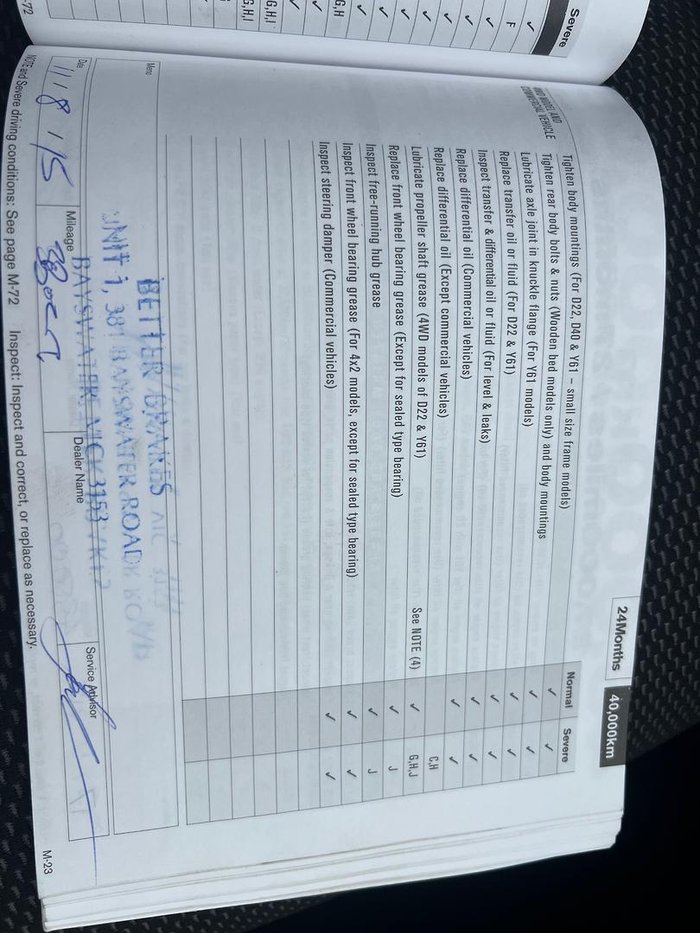 24Months 40,000km
4WD MODEL AND
COMMERCIAL VEHICLE
Normal Severe
Tighten body mountings (For D22, D40 & Y61 – small size frame models) ✓ ✓
Tighten rear body bolts & nuts (Wooden bed models only) and body mountings ✓ ✓
Lubricate axle joint in knuckle flange (For Y61 models) ✓ ✓
Replace transfer oil or fluid (For D22 & Y61)
Inspect transfer & differential oil or fluid (For level & leaks) ✓ ✓
Replace differential oil (Commercial vehicles) ✓ ✓
Replace differential oil (Except commercial vehicles) C,H
Lubricate propeller shaft grease (4WD models of D22 & Y61) See NOTE (4) ✓ G,H,J
Replace front wheel bearing grease (Except for sealed type bearing) ✓ J
Inspect free-running hub grease ✓ J
Inspect front wheel bearing grease (For 4x2 models, except for sealed type bearing) ✓ ✓
Inspect steering damper (Commercial vehicles) ✓ ✓
Memo
BETTER BRAKES
UNIT 1, 381 BAYSWATER ROAD
BAYSWATER VIC 3153
Date Mileage Dealer Name Service Advisor
11 8 15
NOTE and Severe driving conditions: See page M-72 Inspect: Inspect and correct, or replace as necessary.
M-23
Severe
✓
F
✓
✓
✓
✓
✓
✓
G,H
✓
✓
G,H,I
G,H,I
-72